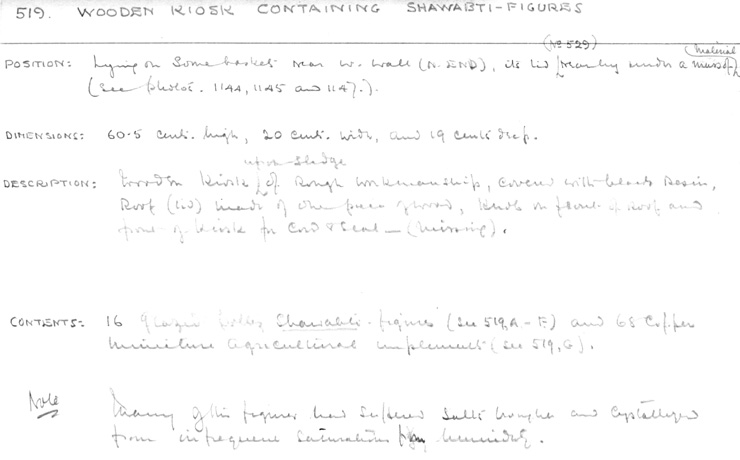 519. WOODEN KIOSK CONTAINING SHAWABTI-FIGURES
(No 529) (material
POSITION: Lying on some baskets near W. wall (N. END), its lid [nearby under a mass of]
(See photos. 1144, 1145 and 1147.).
DIMENSIONS: 60·5 cents. high, 20 cents. wide, and 19 cents deep.
upon-sledge
DESCRIPTION: Wooden Kiosk of Rough workmanship, covered with black resin,
Roof (lid) made of one piece of wood, Knobs on front of roof and
front of Kiosk for Cord & Seal — (Missing).
CONTENTS: 16 Shawabti-figures (See 519, A-F) and 68 Copper
miniature agricultural implements (see 519, G).
Note Many of the figures had suffered and
from infrequent saturation by humidity.